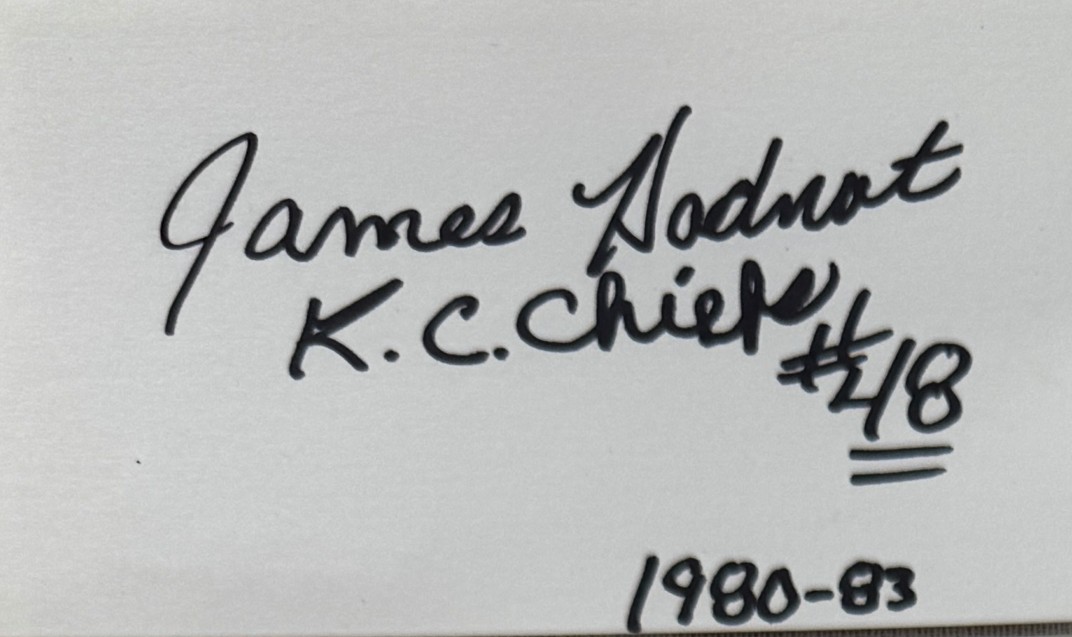 James Hadnot
K.C. Chiefs
#48
1980-83